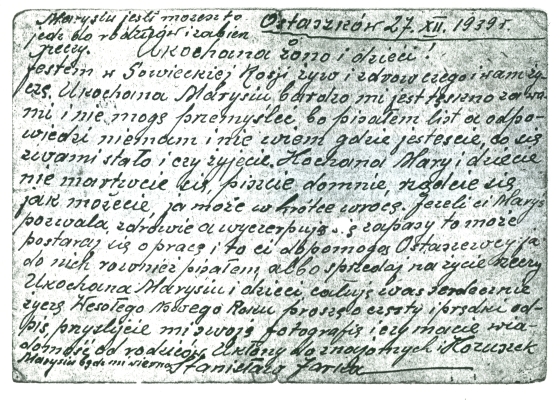 Marysiu jeśli możesz to
jedź do rodziców i zabierz
rzeczy.
Ostaszków 27. XII. 1939 r
Ukochana żono i dzieci!
Jestem w Sowieckiej Rosji żyw i zdrów czego i wam ży-
czę. Ukochana Marysiu bardzo mi jest tęskno za wa-
mi i nie mogę przemyśleć bo pisałem list a odpo-
wiedzi niemam i nie wiem gdzie jesteście, co się
zwami stało i czy żyjecie. Kochana Mary i dziecie
nie martwcie się, piszcie domnie, radźcie się
jak możecie ja może wkrótce wrócę. Jeżeli ci Marys
pozwala zdrówie a wyczerpują się zapasy to może
postaraj się o pracę i to ci dopomogą Ostaszewscy ja
do nich rownież pisałem, albo sprzedaj na życie rzeczy
Ukochana Marysiu i dzieci całuję was serdecznie
życzę Wesołego Nowego Roku proszę o częsty i prędki od-
pis, przyslijcie mi swoją fotografię i czy macie wia-
domość od rodziców. Ukłony do znajomych i
Marysiu bądź mi wierna Stanisław